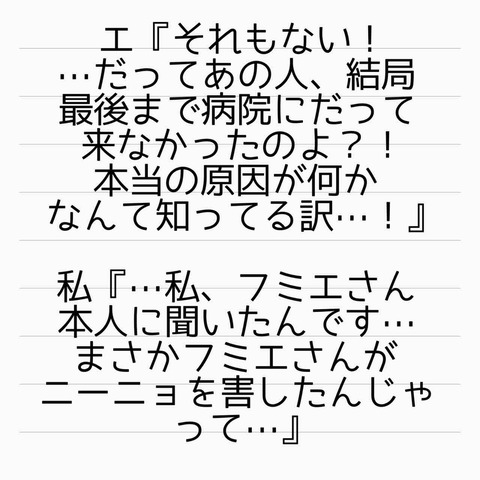 エ『それもない！
…だってあの人、結局
最後まで病院にだって
来なかったのよ？！
本当の原因が何か
なんて知ってる訳…！』
私『…私、フミエさん
本人に聞いたんです…
まさかフミエさんが
ニーニョを害したんじゃ
って…』